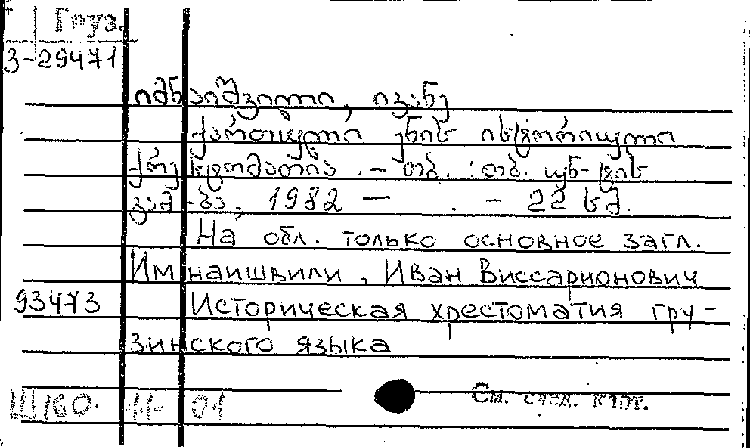 Груз.
3-29471
იმნაიშვილი, ივანე
ქართული ენის ისტორიული
ქრესტომათია. - თბ. : თბ. უნ-ტის
გამ-ბა, 1982 — . - 22 სმ.
На обл. только основное загл.
Имнаишвили, Иван Виссарионович
93473 Историческая хрестоматия гру-
зинского языка
Ш160. 11- 01 См. след. карт.